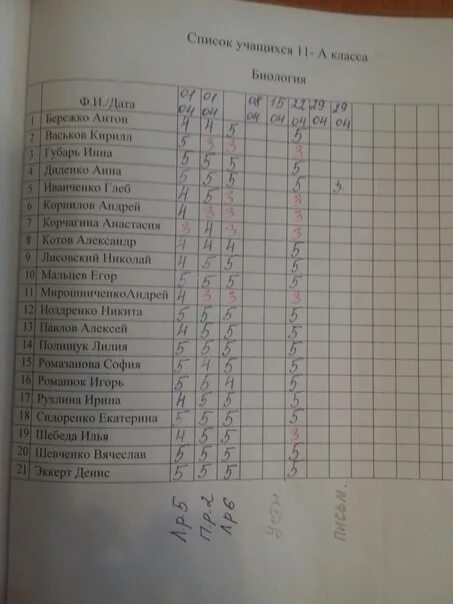 Список учащихся 11- А класса
Биология
Ф.И./Дата 01 04 01 04 08 04 15 04 22 04 29 04 29 04
1 Бережко Антон 4 4 5 5
2 Васьков Кирилл 5 3 3 3
3 Губарь Инна 5 5 5 5
4 Диденко Анна 5 5 5 5 3
5 Иванченко Глеб 4 5 3 3
6 Корнилов Андрей 4 3 3 3
7 Корчагина Анастасия 3 4 3 3
8 Котов Александр 4 4 4 5
9 Лисовский Николай 4 5 5 5
10 Мальцев Егор 5 5 5 5
11 МирошниченкоАндрей 4 3 3 3
12 Ноздренко Никита 5 5 5 5
13 Павлов Алексей 4 5 5 5
14 Полищук Лилия 5 5 5 5
15 Ромазанова София 5 4 5 5
16 Романюк Игорь 5 5 4 5
17 Рухлина Ирина 4 5 5 5
18 Сидоренко Екатерина 5 5 5 5
19 Шебеда Илья 4 5 5 3
20 Шевченко Вячеслав 5 5 5 5
21 Эккерт Денис 5 5 5 5
Л.р.5 Пр.2 Лр6 устн письм.